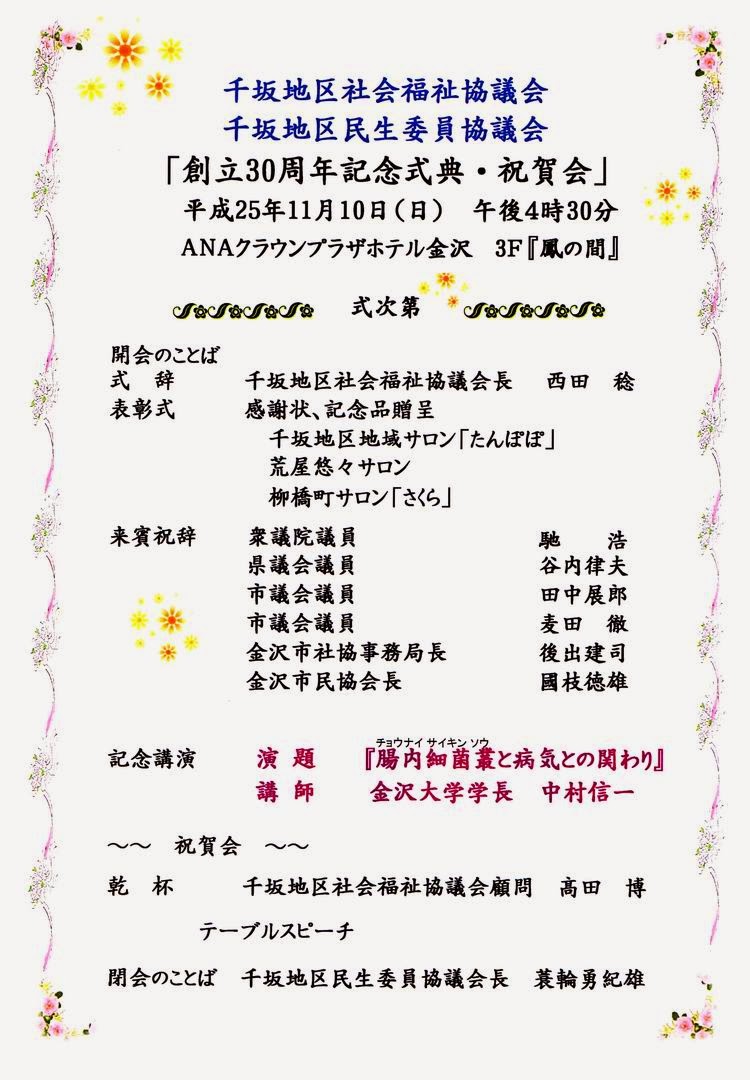 千坂地区社会福祉協議会
千坂地区民生委員協議会
「創立30周年記念式典・祝賀会」
平成25年11月10日（日）　午後4時30分
ANAクラウンプラザホテル金沢　3F『鳳の間』
式次第
開会のことば
式　辞　千坂地区社会福祉協議会長　西田　稔
表彰式　感謝状、記念品贈呈
千坂地区地域サロン「たんぽぽ」
荒屋悠々サロン
柳橋町サロン「さくら」
来賓祝辞　衆議院議員　馳　浩
県議会議員　谷内律夫
市議会議員　田中展郎
市議会議員　麦田　徹
金沢市社協事務局長　後出建司
金沢市民協会長　國枝徳雄
チョウナイ サイキン ソウ
記念講演　演　題　『腸内細菌叢と病気との関わり』
講　師　金沢大学学長　中村信一
～～　祝賀会　～～
乾　杯　千坂地区社会福祉協議会顧問　髙田　博
テーブルスピーチ
閉会のことば　千坂地区民生委員協議会長　蓑輪勇紀雄